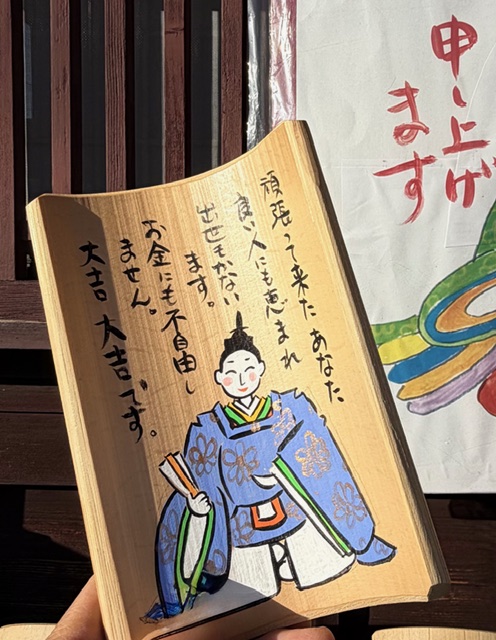 頑張って来たあなた、
良い人にも恵まれ
出世もかない
ます。
お金にも不自由し
ません。
大吉 大吉です。
申し上げ
ます